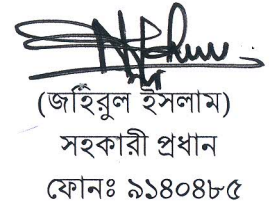 (জহিরুল ইসলাম)
সহকারী প্রধান
ফোনঃ ৯১৪০৪৮৫